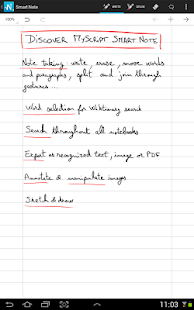 Smart Note
100%
DISCOVER MYSCRIPT SMART NOTE
Note taking: write, erase, move words
and paragraphs, split and join through
gestures...
Word selection for Wiktionary search
Search throughout all notebooks
Export as recognized text, image or PDF
Annotate & manipulate images
Sketch & draw
11:03